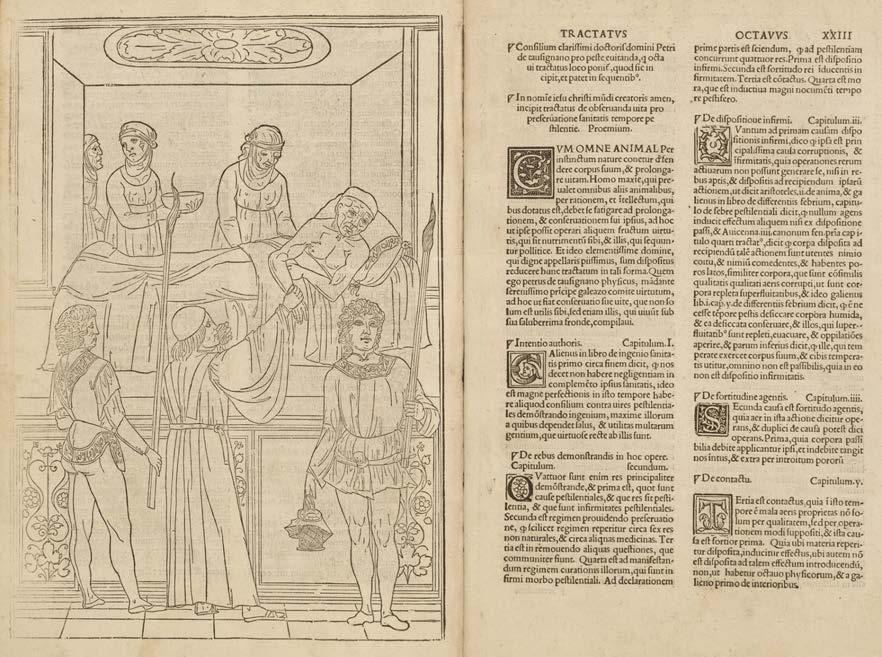 TRACTATVS
OCTAVVS XXIII
Consilium clarissimi doctoris domini Petri
de tausignano pro peste euitanda, ꝙ octa
ui tractatus loco ponit, quod sic in
cipit, et patet in sequentibꝰ.
In nomīe iesu christi mūdi creatoris amen,
incipit tractatus de obseruanda uita pro
preseruatione sanitatis tempore pe
stilentie. Proemium.
CVM OMNE ANIMAL Per
instinctum nature conetur defen
dere corpus suum, & prolonga-
re uitam. Homo maxīe, qui pre-
ualet omnibus aliis animalibus,
per rationem, et ītellectum, qui
bus dotatus est, debet se fatigare ad prolonga-
tionem, & conseruationem sui ipsius, ad hoc
ut ipse possit operari aliquem fructum uirtu-
tis, qui sit nutrimentū sibi, & illis, qui sequun-
tur pollitice. Et ideo clementissime domine,
qui digne appellaris piissimus, sum dispositus
reducere hunc tractatum in tali forma. Quem
ego petrus de tausignano physicus, mādante
serenissimo prīcipe galeazo comite uirtutum,
ad hoc ut fiat conseruatio suę uite, que non so
lum est utilis sibi, sed etiam illis, qui uiuūt sub
sua saluberrima fronde, compilaui.
Intentio authoris. Capitulum. I.
GAlienus in libro de ingenio sanita-
tis primo circa finem dicit, ꝙ nos
decet non habere negligentiam in
complemēto ipsius sanitatis, ideo
est magne perfectionis in isto tempore habe-
re aliquod consilium contra uires pestilentia-
les demōstrando ingenium, maxime illorum
a quibus dependet salus, & utilitas multarum
gentium, que uirtuose recte ab illis sunt.
De rebus demonstrandis in hoc opere.
Capitulum. secundum.
QVattuor sunt enim res principaliter
demōstrande, & prima est, quot sunt
cause pestilentiales, & que res sit pesti-
lentia, & que sunt infirmitates pestilentiales.
Secunda est regimen prouidendo preseruatio
ne, ꝙ scilicet regimen reperitur circa sex res
non naturales, & circa aliquas medicinas. Ter
tia est in remouendo aliquas questiones, que
communiter fiunt. Quarta est ad manifestan-
dum regimen curationis illorum, qui sunt in
firmi morbo pestilentiali. Ad declarationem
prime partis est sciendum, ꝙ ad pestilentiam
concurrunt quatuor res. Prima est dispositio
infirmi. Secunda est fortitudo rei īducentis in
firmitatem. Tertia est cōtactus. Quarta est mo
ra, que est inductiua magni nocumēti tempo
re pestifero.
De dispositione infirmi. Capitulum. iii.
QVantum ad primam causam dispo
sitionis infirmi, dico ꝙ ipsa est prin
cipalissima causa corruptionis, &
īfirmitatis, quia operationes rerum
actiuarum non possunt generare se, nisi in re
bus aptis, & dispositis ad recipiendum ipsarū
actionem, ut dicit aristoteles, ii. de anima, & ga
lienus in libro de differentiis febrium, capitu-
lo de febre pestilentiali dicit, ꝙ nullum agens
inducit effectum aliquem nisi ex dispositione
passi, & Auicenna. iiii. canonum fen. pria cap i-
tulo quarti tractatꝰ, dicit ꝙ corpa disposita ad
recipiendū talē actionem sunt utentes nimio
coitu, & nimiū comedentes, & habentes po-
ros latos, similiter corpora, que sunt cōsimilis
qualitatis qualitati aeris corrupti, ut sunt cor-
pora repleta superfluitatibus, & ideo galienus
lib. i. cap. y. de differentiis febrium dicit, ꝙ ē ne
cesse tēpore pestis desiccare corpora humida,
& ea desiccata conseruare, & illos, qui super-
fluitatibꝰ sunt repleti, euacuare, & oppilatiōes
aperire, & parum inferius dicit, ꝙ ille, qui tem
perate exercet corpus suum, & cibis tempera-
tis utitur, omnino non est passibilis, quia in eo
non est dispositio infirmitatis.
De fortitudine agentis. Capitulum. iiii.
SEcunda causa est fortitudo agentis,
quia aer in ista actione dicitur ope-
rans, & duplici de causa potest dici
operans. Prima, quia corpora passi
bilia debite applicantur ipsi, et indebite tangit
nos intus, & extra per introitum pororū
De contactu. Capitulum. y.
TErtia est contactus, quia ī isto tem-
pore ē mala aeris proprietas nō so-
lum per qualitatem, sed per opera-
tionem modi suppositi, & ista cau-
sa est fortior prima. Quia ubi materia reperi-
tur disposita, inducitur effectus, ubi autem nō
est disposita ad talem effectum introducendū,
non, ut habetur octauo physicorum, & a ga-
lieno primo de interioribus.